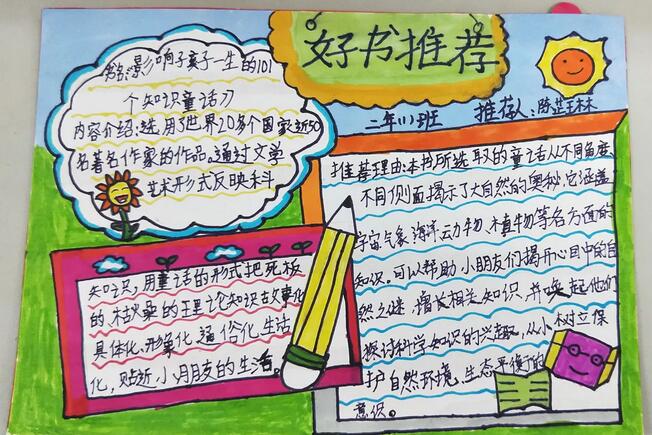 好书推荐
二年(1)班 推荐人:陈芷林
书名:影响孩子一生的101
个知识童话》
内容介绍:选用了世界20多个国家近50
名著名作家的作品。通过文学
艺术形式反映科
知识,用童话的形式把死板
的枯燥的理论知识故事化
具体化、形象化、通俗化、生活
化,贴近小朋友的生活。
推荐理由:本书所选取的童话从不同角度
不同侧面揭示了大自然的奥秘。它涵盖
宇宙气象、海洋动物、植物等各方面的
知识。可以帮助小朋友们揭开心目中的自
然之谜,增长相关知识,并唤起他们
探讨科学知识的兴趣,从小树立保
护自然环境、生态平衡的
意识。